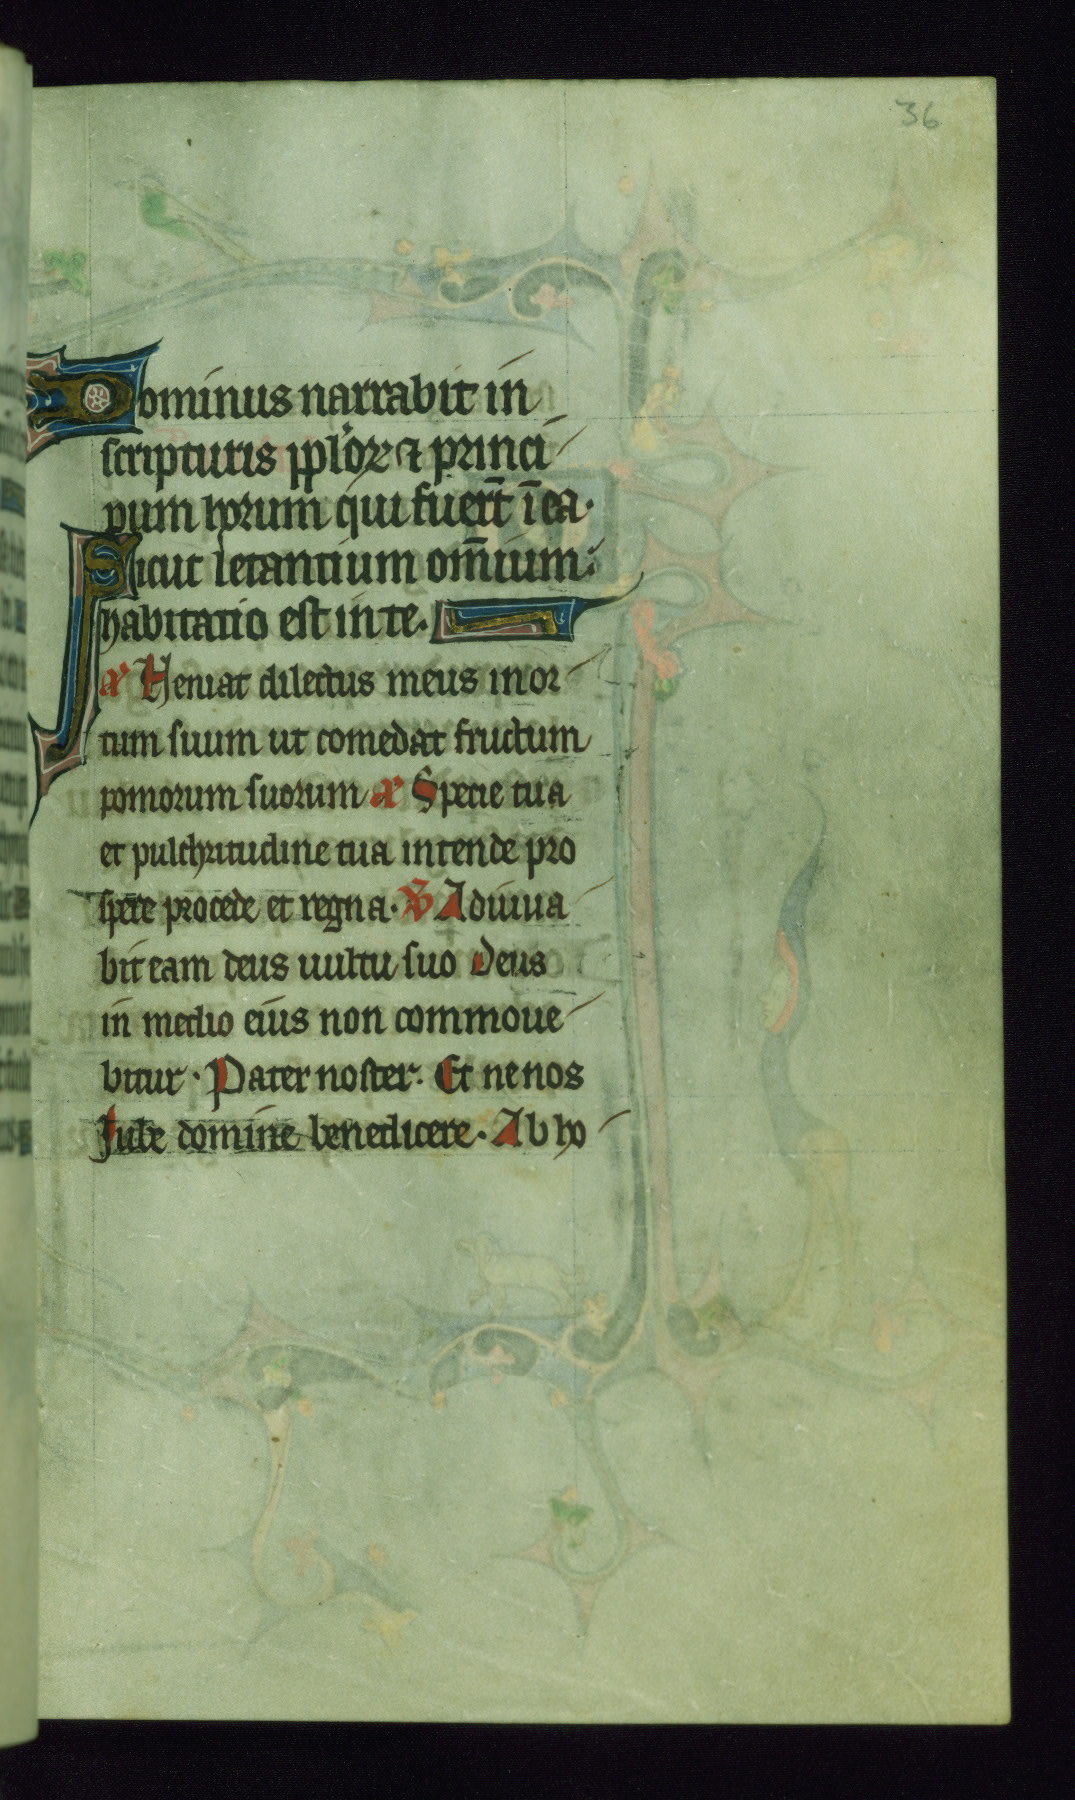 36
Dominus narrabit in
scripturis pplor̄ & princi
pum horum qui fuer̄t ī ea.
Sicut letantium om̄ium:
habitatio est in te.
a͞ Veniat dilectus meus in or
tum suum ut comedat fructum
pomorum suorum a͞ Specie tua
et pulchritudine tua intende pro
spere procede et regna. V̄ Adiuua
bit eam deus uultu suo Deus
in medio eius non commoue
bitur. Pater noster. Et ne nos
Iube domine benedicere. Ab ho